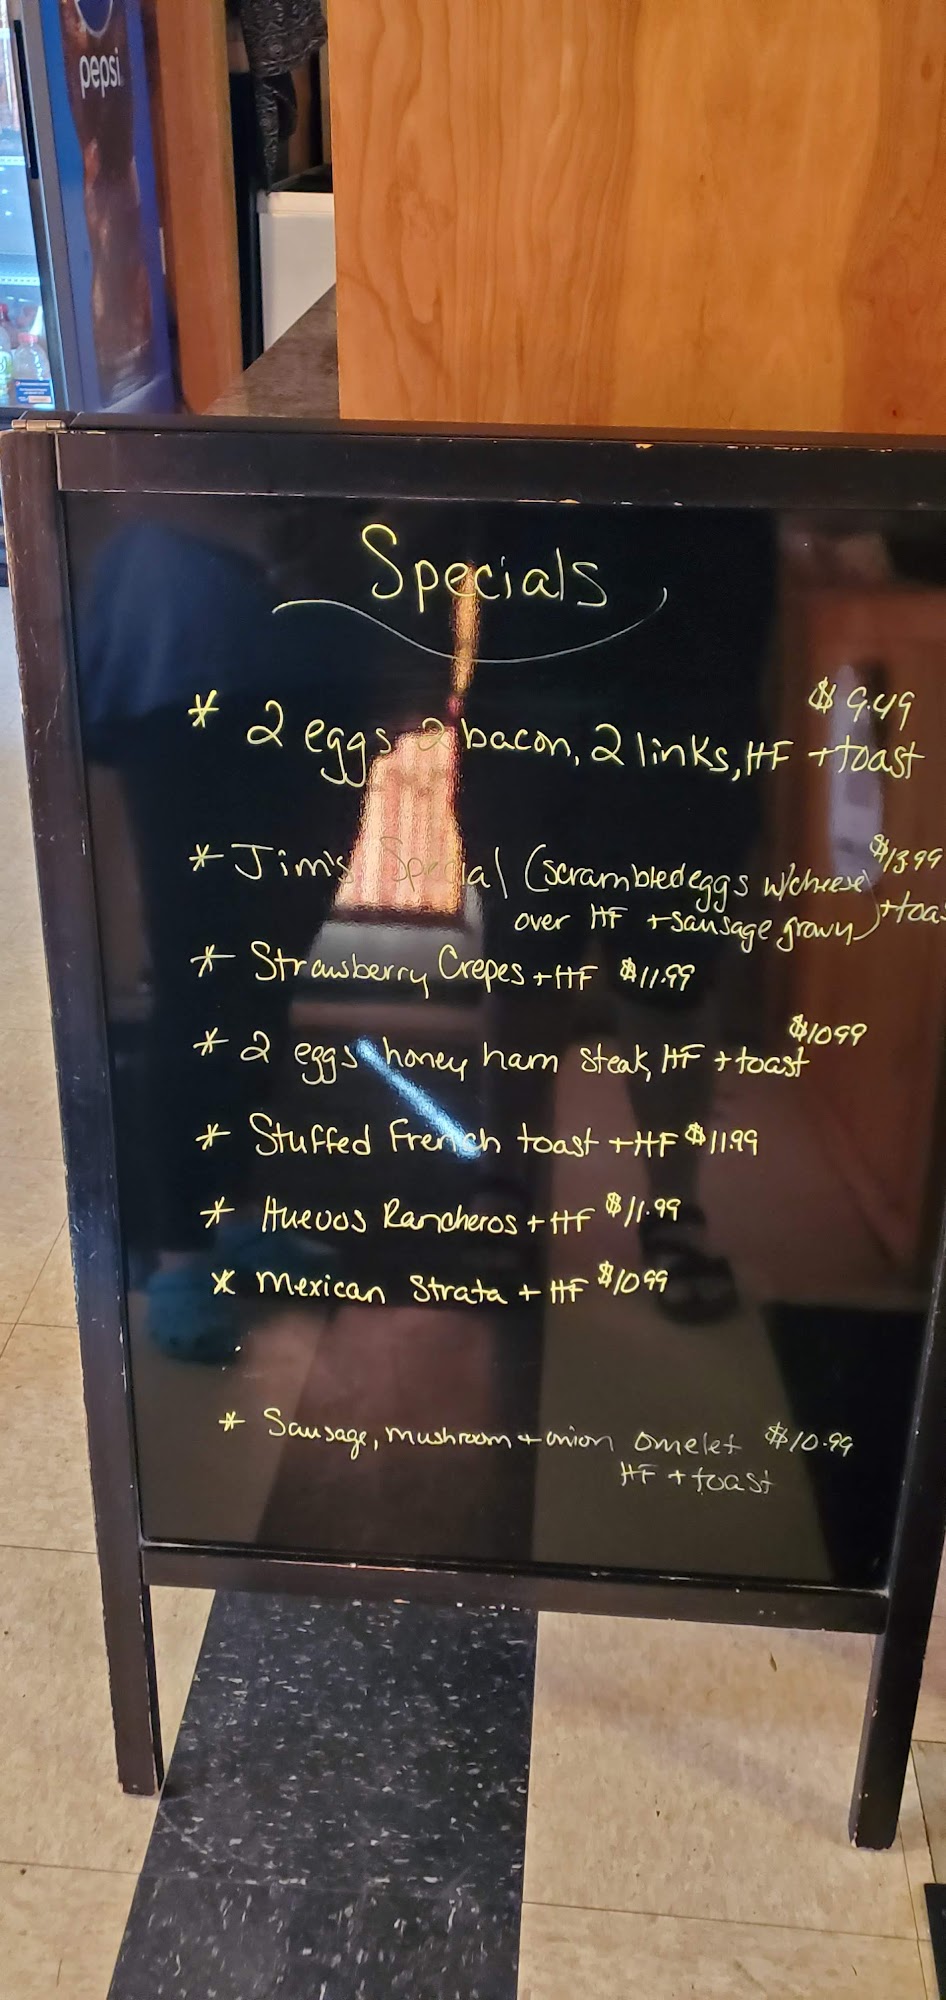 pepsi
Specials
$9.49
* 2 eggs 2 bacon, 2 links, HF + toast
$13.99
* Jim's Special (scrambled eggs w/cheese
over HF + sausage gravy) + toas
* Strawsberry Crepes + HF $11.99
$1099
* 2 eggs honey ham steak, HF + toast
* Stuffed French toast + HF $11.99
* Huevos Rancheros + HF $11.99
* Mexican Strata + HF $1099
* Sausage, mushroom + onion omelet $10.99
HF + toast